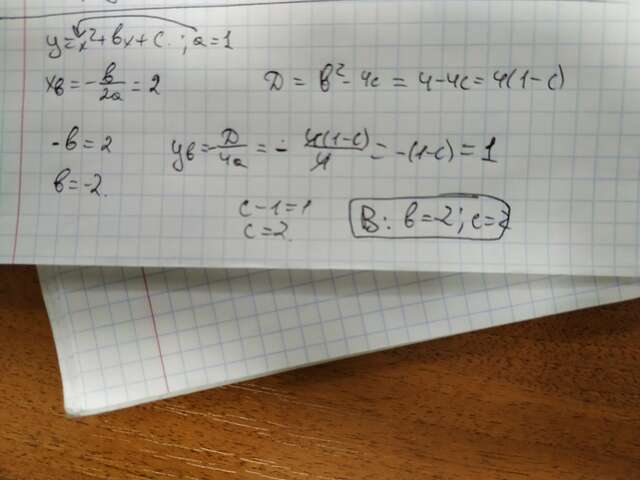 y = x² + bx + c. ; a = 1
xв = -b/2a = 2
D = b² - 4c = 4 - 4c = 4(1 - c)
-b = 2
yв = -D/4a = - 4(1-c)/4 = -(1-c) = 1
b = -2.
c - 1 = 1
c = 2.
B: b = -2; c = 2